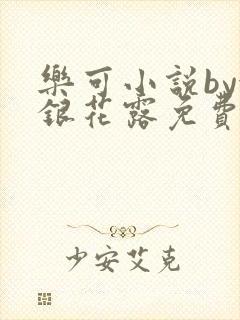 樂可小說by
銀花露免費
少安艾克